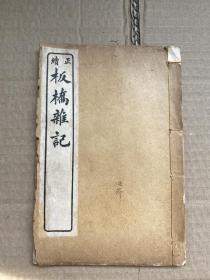 正續
板橋雜記